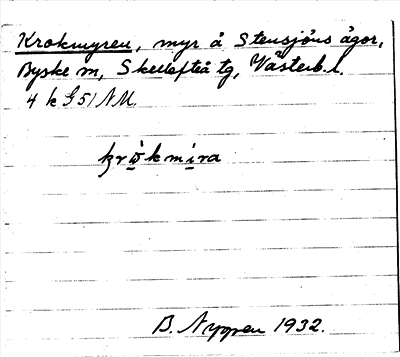 Krokmyren, myr å Stensjöns ägor,
Byske sn, Skellefteå tg, Västerb. l.
4 k G 51 NM.
krọ̀kmịra
B. Nygren 1932.